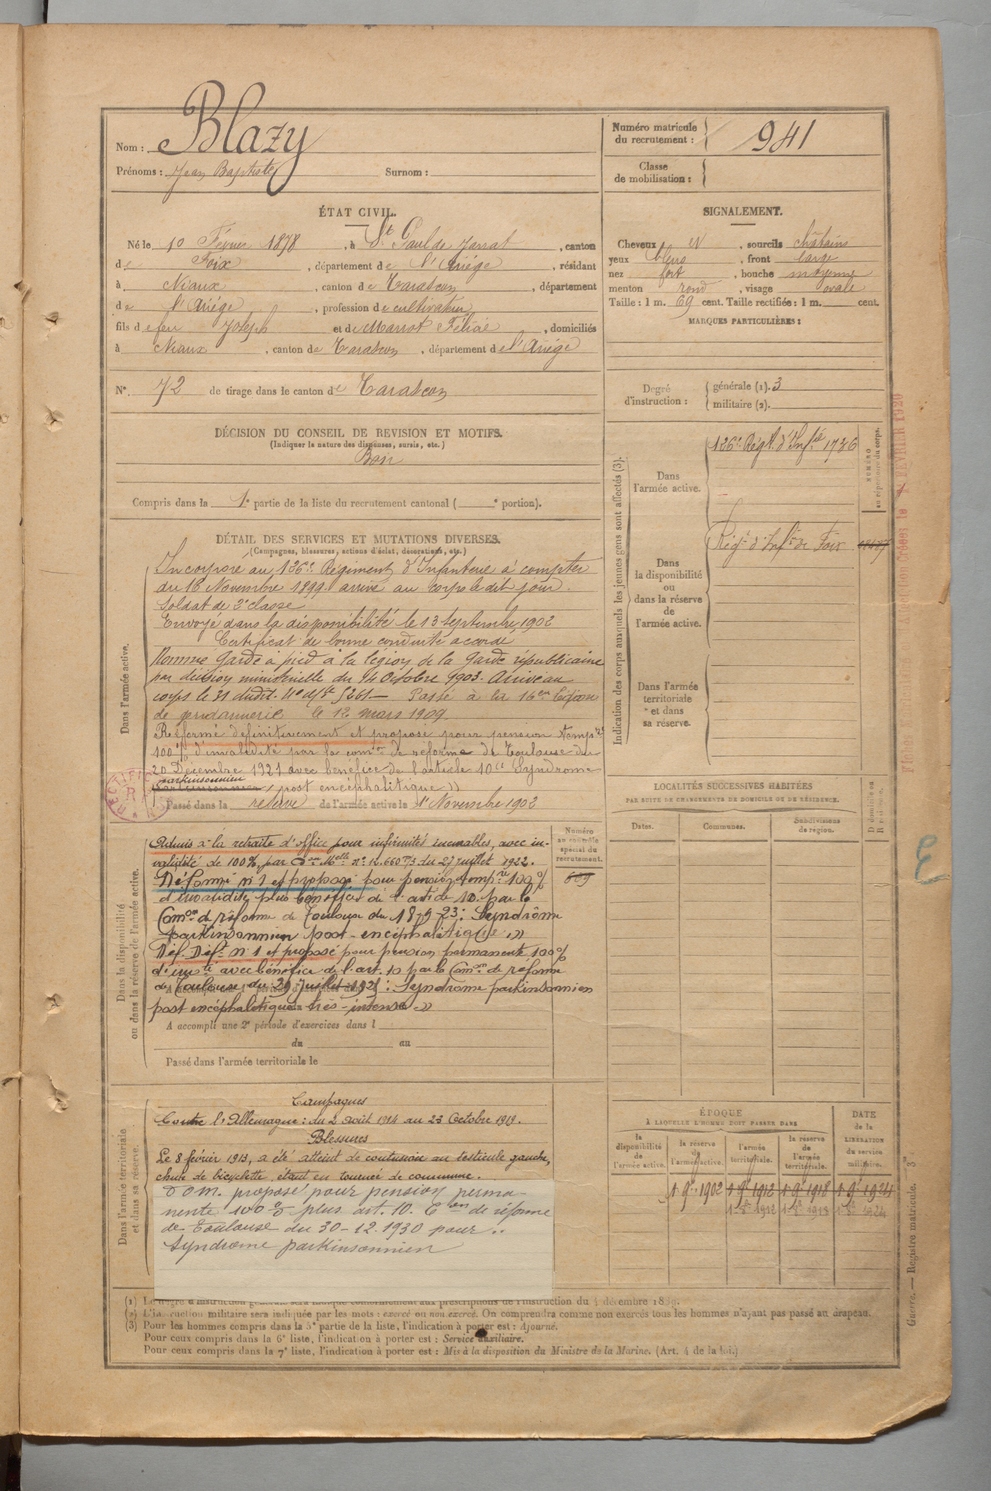 Nom : Blazy
Prénoms : Jean Baptiste Surnom :
Numéro matricule du recrutement : 941
Classe de mobilisation :
ÉTAT CIVIL.
Né le 10 Février 1878, à St Paul de Jarrat, canton
de Foix, département de l'Ariége, résidant
à Niaux, canton de Tarascon, département
de l'Ariége, profession de cultivateur
fils de feu Joseph et de Marrot Félicie, domiciliés
à Niaux, canton de Tarascon, département de l'Ariége
SIGNALEMENT.
Cheveux N, sourcils châtains
yeux bleus, front large
nez fort, bouche moyenne
menton rond, visage ovale
Taille : 1 m. 69 cent. Taille rectifiée : 1 m. cent.
MARQUES PARTICULIÈRES :
N° 72 de tirage dans le canton de Tarascon
Degré d'instruction : générale (1). 3
militaire (2).
DÉCISION DU CONSEIL DE REVISION ET MOTIFS.
(Indiquer la nature des dispenses, sursis, etc.)
Bon
Compris dans la 1e partie de la liste du recrutement cantonal ( e portion).
DÉTAIL DES SERVICES ET MUTATIONS DIVERSES.
(Campagnes, blessures, actions d'éclat, décorations, etc.)
Dans l'armée active.
Incorporé au 126e Régiment d'Infanterie à compter
du 16 Novembre 1899 arrivé au corps le dit jour.
Soldat de 2e classe
Envoyé dans la disponibilité le 13 Septembre 1902
Certificat de bonne conduite accordé
Nommé Garde à pied à la légion de la Garde républicaine
par décision ministérielle du 14 Octobre 1903. Arrivé au
corps le 31 dudit. No Mle 5261 — Passé à la 16eme Légion
de gendarmerie le 12 mars 1909
Réformé définitivement et proposé pour pension temp
100% d'invalidité par la comon de réforme de Toulouse du
20 Décembre 1921 avec bénéfice de l'article 10 Syndrome
parkinsonnien
post encéphalitique »
Passé dans la réserve de l'armée active le 1er Novembre 1902
Dans la disponibilité ou dans la réserve de l'armée active.
Admis à la retraite d'office pour infirmités incurables, avec in-
validité de 100%, par Don Melle n° 12.660 du 27 juillet 1922.
Réformé n° 1 et proposé pour pension temp re 100%
d'invalidité plus bénéfice de l'art de 10 par la
Comon de réforme de Toulouse du 18-9-23 : Syndrôme
parkinsonnien post-encéphalitique »
Réf. Défve n° 1 et proposé pour pension permanente 100%
d'invté avec bénéfice de l'art. 10 par la Comon de réforme
de Toulouse du 29 Juillet : Syndrome parkinsonnien
post encéphalitique très-intense »
A accompli une 2e période d'exercices dans l
du au
Passé dans l'armée territoriale le
Numéro au contrôle spécial du recrutement.
Dans l'armée territoriale et dans sa réserve.
Campagnes
Contre l'Allemagne : du 2 août 1914 au 23 Octobre 1919.
Blessures
Le 8 février 1913, a été atteint de contusion au testicule gauche,
chute de bicyclette, étant en tournée de commune.
D.O.M. proposé pour pension perma-
nente 100% plus art. 10. Con de réforme
de Toulouse du 30-12.1930 pour :
Syndrome parkinsonnien
Indication des corps auxquels les jeunes gens sont affectés (3).
Dans l'armée active.
126e Régt. d'Infie 1726
NUMÉRO au répertoire du corps.
Dans la disponibilité ou dans la réserve de l'armée active.
Régt d'Infie de Foix
Dans l'armée territoriale et dans sa réserve.
LOCALITÉS SUCCESSIVES HABITÉES
PAR SUITE DE CHANGEMENTS DE DOMICILE OU DE RÉSIDENCE.
Dates. Communes. Subdivisions de région.
ÉPOQUE
À LAQUELLE L'HOMME DOIT PASSER DANS
la disponibilité de l'armée active.
la réserve de l'armée active.
l'armée territoriale.
la réserve de l'armée territoriale.
DATE de la LIBÉRATION du service militaire.
1 9e 1902 1 9e 1912 1 9e 1918 1 9e 1924
E
Guerre. — Registre matricule. 3e
(1) Le degré d'instruction générale sera indiqué conformément aux prescriptions de l'instruction du 4 décembre 1889.
(2) L'instruction militaire sera indiquée par les mots : exercé ou non exercé. On comprendra comme non exercés tous les hommes n'ayant pas passé au drapeau.
(3) Pour les hommes compris dans la 5e partie de la liste, l'indication à porter est : Ajourné.
Pour ceux compris dans la 6e liste, l'indication à porter est : Service auxiliaire.
Pour ceux compris dans la 7e liste, l'indication à porter est : Mis à la disposition du Ministre de la Marine. (Art. 4 de la loi.)